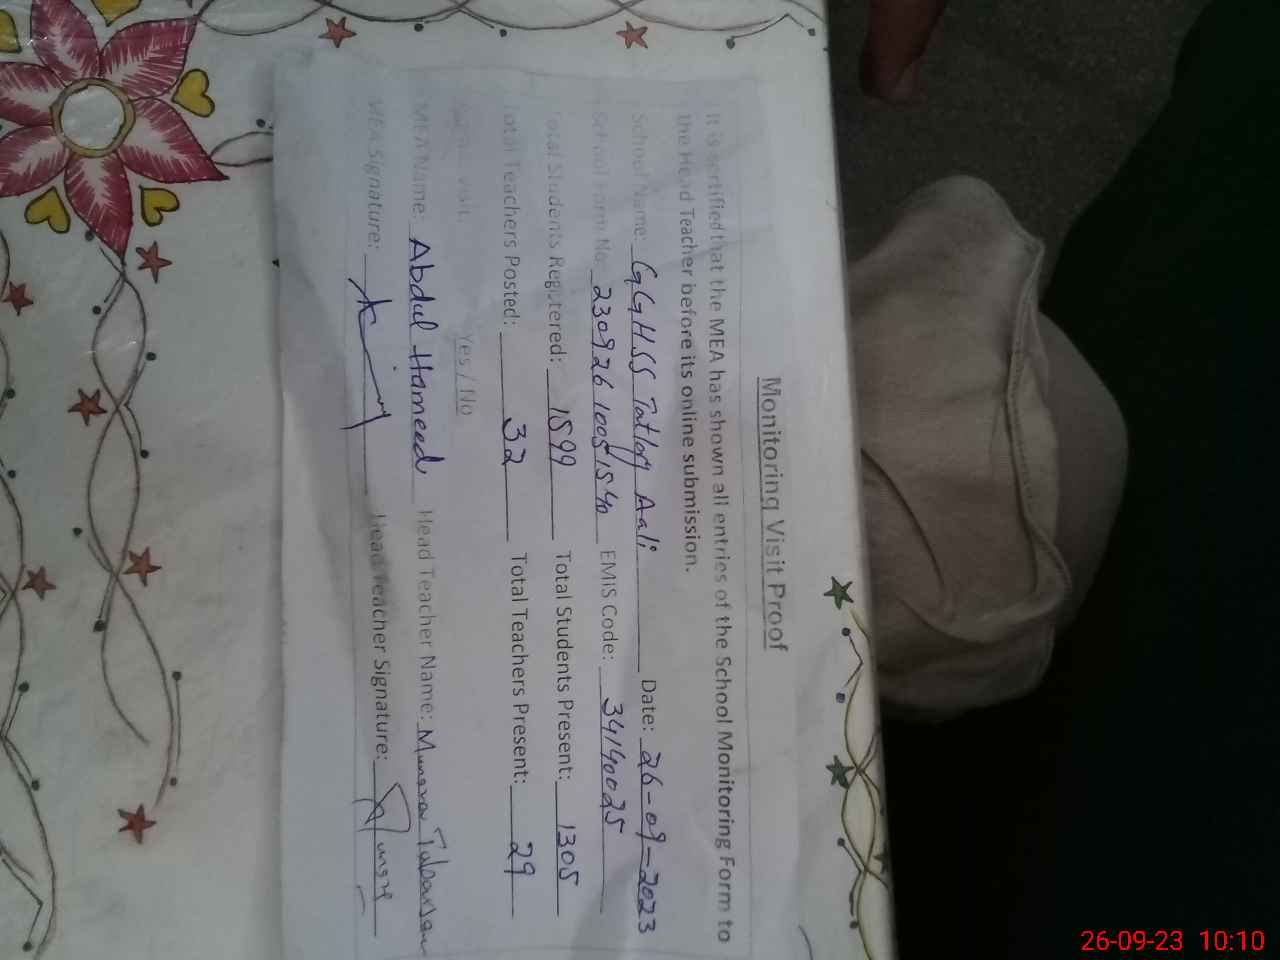 Monitoring Visit Proof
It is certified that the MEA has shown all entries of the School Monitoring Form to
the Head Teacher before its online submission.
School Name: GGHSS Tatlay Aali Date: 26-09-2023
School Form No: 23092610051540 EMIS Code: 34140025
Total Students Registered: 1599 Total Students Present: 1305
Total Teachers Posted: 32 Total Teachers Present: 29
visit: Yes / No
MEA Name: Abdul Hameed Head Teacher Name:
MEA Signature: Head Teacher Signature:
26-09-23 10:10